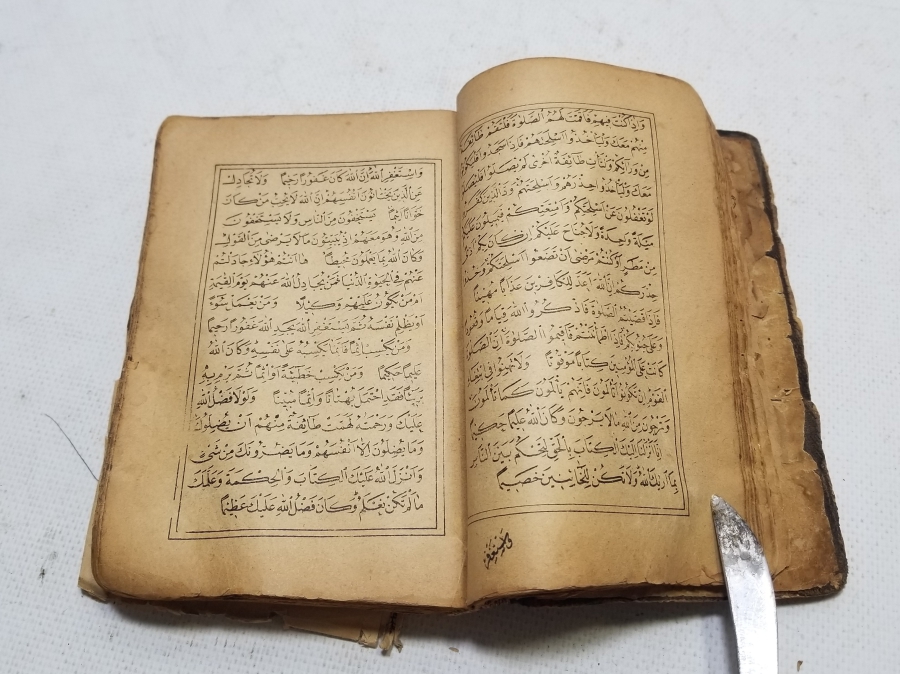 وَاِذَا كُنْتَ فِيهِمْ فَاَقَمْتَ لَهُمُ الصَّلٰوةَ فَلْتَقُمْ طَائِفَةٌ
مِنْهُمْ مَعَكَ وَلْيَاْخُذُوا اَسْلِحَتَهُمْ فَاِذَا سَجَدُوا فَلْيَكُونُوا
مِنْ وَرَائِكُمْ وَلْتَاْتِ طَائِفَةٌ اُخْرٰى لَمْ يُصَلُّوا فَلْيُصَلُّوا
مَعَكَ وَلْيَاْخُذُوا حِذْرَهُمْ وَاَسْلِحَتَهُمْ وَدَّ الَّذِينَ كَفَرُوا
لَوْ تَغْفُلُونَ عَنْ اَسْلِحَتِكُمْ وَاَمْتِعَتِكُمْ فَيَمِيلُونَ عَلَيْكُمْ
مَيْلَةً وَاحِدَةً وَلَا جُنَاحَ عَلَيْكُمْ اِنْ كَانَ بِكُمْ اَذًى
مِنْ مَطَرٍ اَوْ كُنْتُمْ مَرْضٰى اَنْ تَضَعُوا اَسْلِحَتَكُمْ وَخُذُوا
حِذْرَكُمْ اِنَّ اللّٰهَ اَعَدَّ لِلْكَافِرِينَ عَذَابًا مُهِينًا
فَاِذَا قَضَيْتُمُ الصَّلٰوةَ فَاذْكُرُوا اللّٰهَ قِيَامًا وَقُعُودًا
وَعَلٰى جُنُوبِكُمْ فَاِذَا اطْمَاْنَنْتُمْ فَاَقِيمُوا الصَّلٰوةَ اِنَّ الصَّلٰوةَ
كَانَتْ عَلَى الْمُؤْمِنِينَ كِتَابًا مَوْقُوتًا وَلَا تَهِنُوا فِى ابْتِغَاءِ
الْقَوْمِ اِنْ تَكُونُوا تَاْلَمُونَ فَاِنَّهُمْ يَاْلَمُونَ كَمَا تَاْلَمُونَ
وَتَرْجُونَ مِنَ اللّٰهِ مَا لَا يَرْجُونَ وَكَانَ اللّٰهُ عَلِيمًا حَكِيمًا
اِنَّا اَنْزَلْنَا اِلَيْكَ الْكِتَابَ بِالْحَقِّ لِتَحْكُمَ بَيْنَ النَّاسِ
بِمَا اَرٰيكَ اللّٰهُ وَلَا تَكُنْ لِلْخَائِنِينَ خَصِيمًا
وَاسْتَغْفِرِ
وَاسْتَغْفِرِ اللّٰهَ اِنَّ اللّٰهَ كَانَ غَفُورًا رَحِيمًا وَلَا تُجَادِلْ
عَنِ الَّذِينَ يَخْتَانُونَ اَنْفُسَهُمْ اِنَّ اللّٰهَ لَا يُحِبُّ مَنْ كَانَ
خَوَّانًا اَثِيمًا يَسْتَخْفُونَ مِنَ النَّاسِ وَلَا يَسْتَخْفُونَ
مِنَ اللّٰهِ وَهُوَ مَعَهُمْ اِذْ يُبَيِّتُونَ مَا لَا يَرْضٰى مِنَ الْقَوْلِ
وَكَانَ اللّٰهُ بِمَا يَعْمَلُونَ مُحِيطًا هَا اَنْتُمْ هٰؤُلَاءِ جَادَلْتُمْ
عَنْهُمْ فِى الْحَيٰوةِ الدُّنْيَا فَمَنْ يُجَادِلُ اللّٰهَ عَنْهُمْ يَوْمَ الْقِيٰمَةِ
اَمْ مَنْ يَكُونُ عَلَيْهِمْ وَكِيلًا وَمَنْ يَعْمَلْ سُوءًا
اَوْ يَظْلِمْ نَفْسَهُ ثُمَّ يَسْتَغْفِرِ اللّٰهَ يَجِدِ اللّٰهَ غَفُورًا رَحِيمًا
وَمَنْ يَكْسِبْ اِثْمًا فَاِنَّمَا يَكْسِبُهُ عَلٰى نَفْسِهِ وَكَانَ اللّٰهُ
عَلِيمًا حَكِيمًا وَمَنْ يَكْسِبْ خَطِيئَةً اَوْ اِثْمًا ثُمَّ يَرْمِ بِهِ
بَرِيئًا فَقَدِ احْتَمَلَ بُهْتَانًا وَاِثْمًا مُبِينًا وَلَوْلَا فَضْلُ اللّٰهِ
عَلَيْكَ وَرَحْمَتُهُ لَهَمَّتْ طَائِفَةٌ مِنْهُمْ اَنْ يُضِلُّوكَ
وَمَا يُضِلُّونَ اِلَّا اَنْفُسَهُمْ وَمَا يَضُرُّونَكَ مِنْ شَيْءٍ
وَاَنْزَلَ اللّٰهُ عَلَيْكَ الْكِتَابَ وَالْحِكْمَةَ وَعَلَّمَكَ
مَا لَمْ تَكُنْ تَعْلَمُ وَكَانَ فَضْلُ اللّٰهِ عَلَيْكَ عَظِيمًا